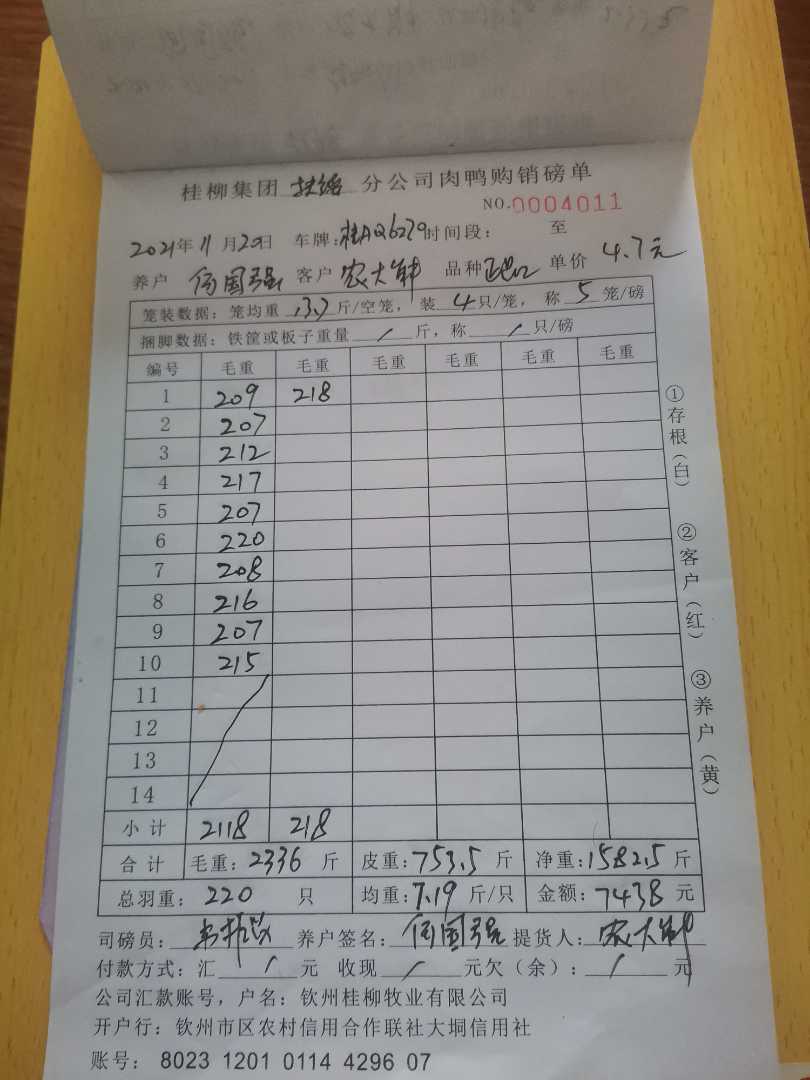 桂柳集团 扶绥 分公司肉鸭购销磅单
NO.0004011
2021年11月20日 车牌:桂AQ6279 时间段: 至
养户 伍国强 客户 农大 品种 单价 4.7元
笼装数据: 笼均重 13.7 斤/空笼, 装 4 只/笼, 称 5 笼/磅
捆脚数据: 铁筐或板子重量 / 斤, 称 / 只/磅
编号 毛重 毛重 毛重 毛重 毛重 毛重
1 209 218
2 207
3 212
4 217
5 207
6 220
7 208
8 216
9 207
10 215
11
12
13
14
小计 2118 218
合计 毛重: 2336 斤 皮重: 753.5 斤 净重: 1582.5 斤
总羽重: 220 只 均重: 7.19 斤/只 金额: 7438 元
司磅员: 养户签名: 伍国强 提货人: 农大
付款方式: 汇 / 元 收现 / 元欠(余): / 元
公司汇款账号, 户名: 钦州桂柳牧业有限公司
开户行: 钦州市区农村信用合作联社大垌信用社
账号: 8023 1201 0114 4296 07
①存根(白)
②客户(红)
③养户(黄)